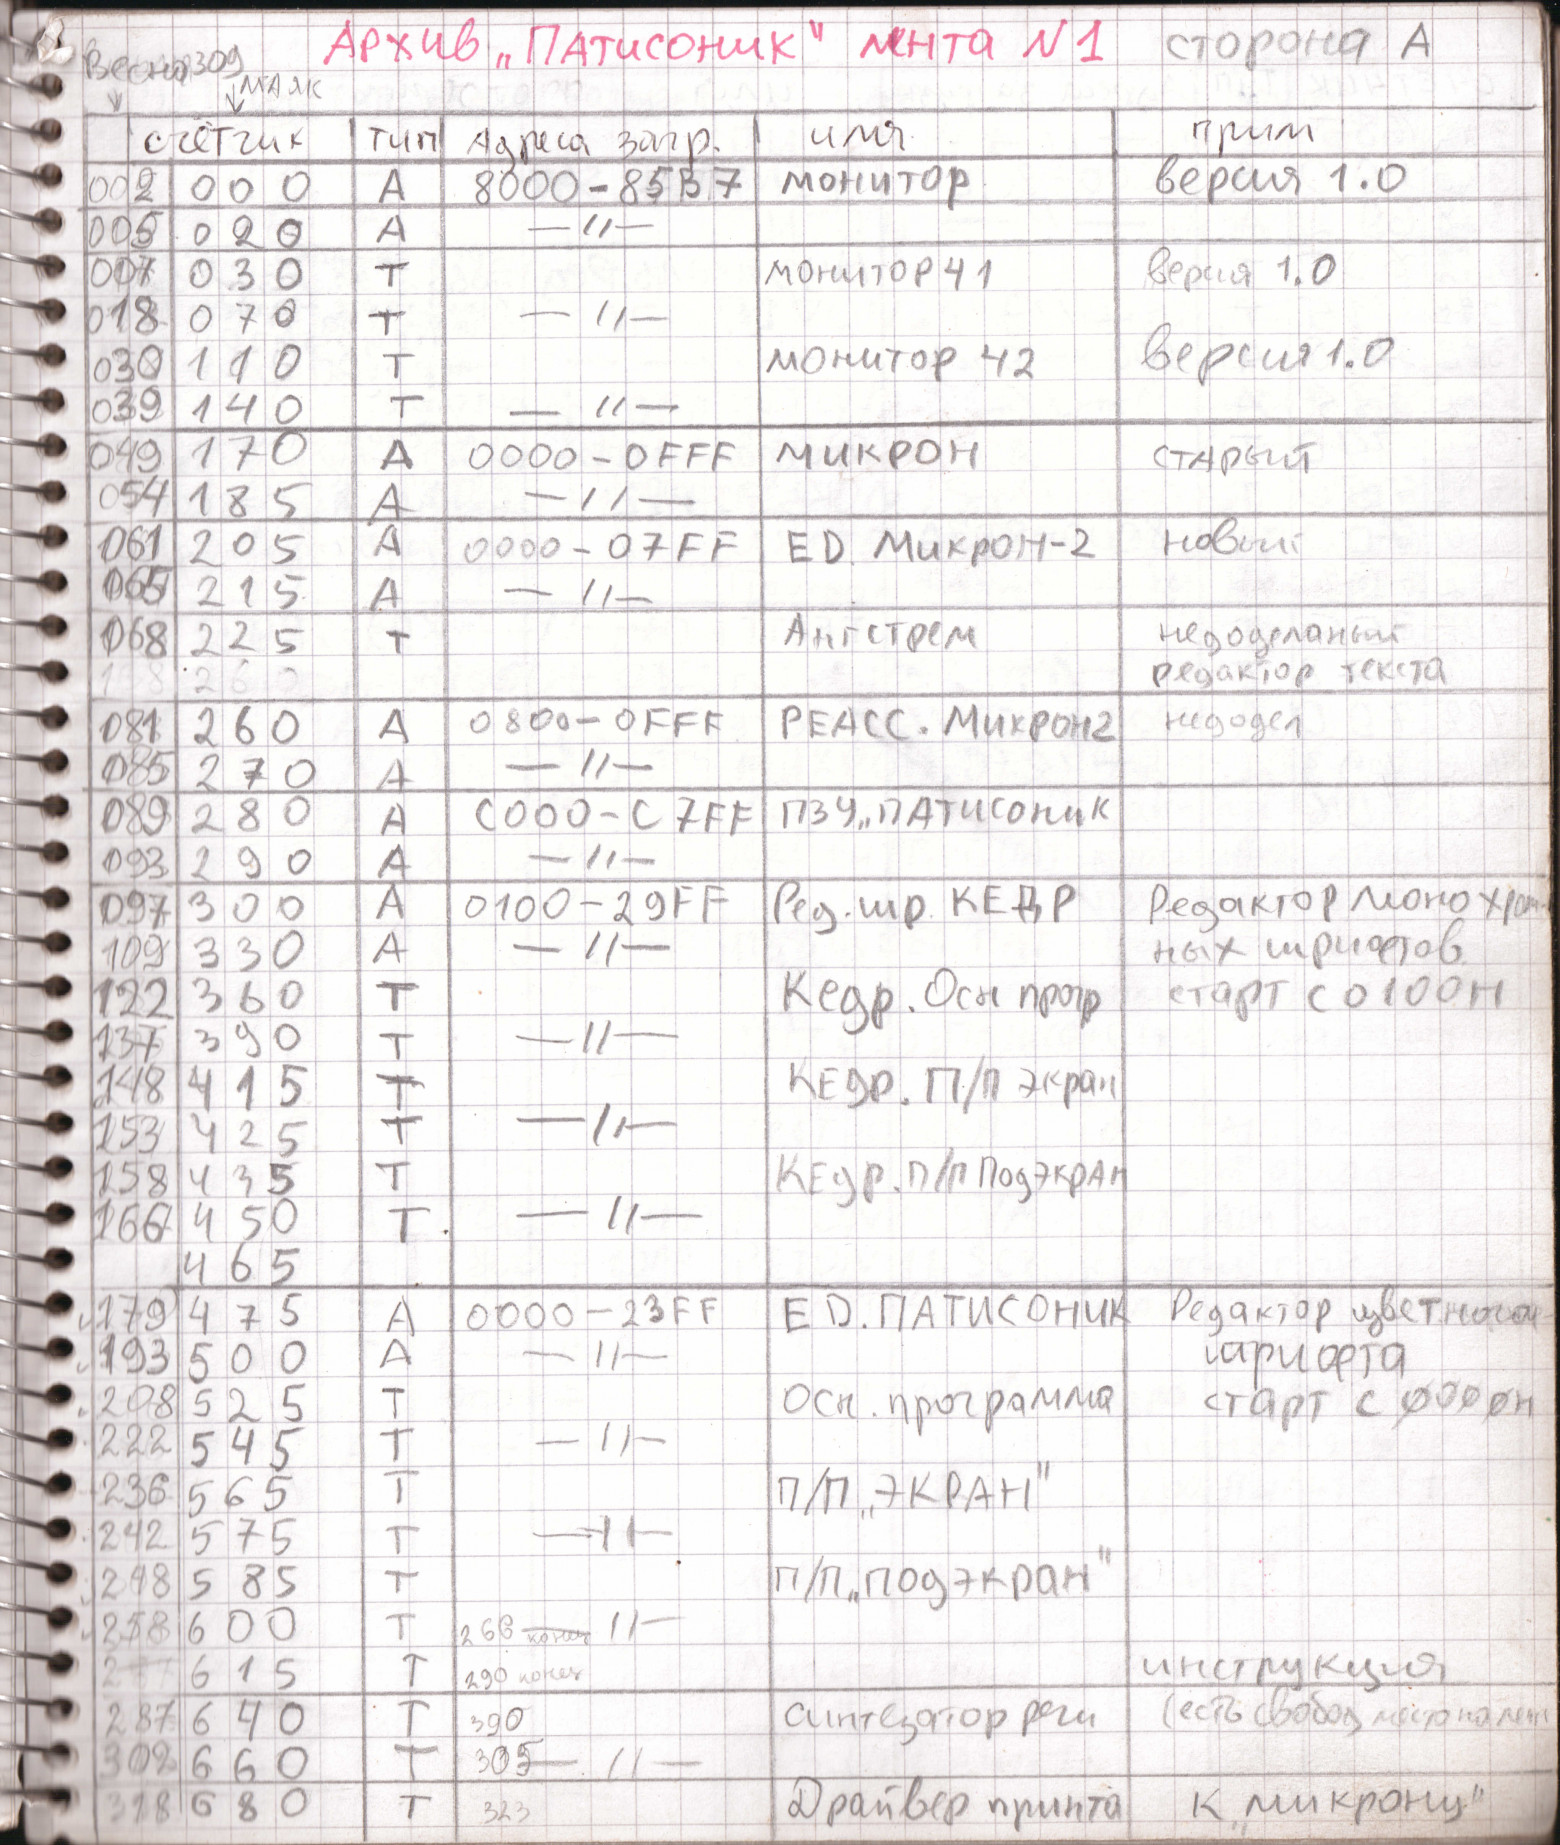 Архив „Патисоник" лента N1 сторона А
Весна309
маяк
счётчик тип Адреса загр. имя прим
002 000 А 8000-85B7 монитор версия 1.0
005 020 А —//—
007 030 Т монитор Ч1 версия 1.0
018 070 Т —//—
030 110 Т монитор Ч2 версия 1.0
039 140 Т —//—
049 170 А 0000-0FFF микрон старый
054 185 А —//—
061 205 А 0000-07FF ED. Микрон-2 новый
065 215 А —//—
068 225 Т Ангстрем недоделаный
260 редактор текста
081 260 А 0800-0FFF РЕАСС. Микрон2 недодел
085 270 А —//—
089 280 А C000-C7FF ПЗУ„ПАТИСОНИК
093 290 А —//—
097 300 А 0100-29FF Ред.шр. КЕДР Редактор монохром-
109 330 А —//— ных шрифтов
122 360 Т Кедр. Осн прогр старт с 0100Н
137 390 Т —//—
148 415 Т КЕДР. П/П экран
153 425 Т —//—
158 435 Т КЕДР. п/п Подэкран
166 450 Т —//—
465
179 475 А 0000-23FF ED. ПАТИСОНИК Редактор цветного
193 500 А —//— шрифта
208 525 Т Осн. программа старт с 0000Н
222 545 Т —//—
236 565 Т П/П „ЭКРАН"
242 575 Т —//—
248 585 Т П/П „подэкран"
258 600 Т 266 конец —//—
615 Т 290 конец инструкция
287 640 Т 390 синтезатор речи (есть свобод место на ленте
302 660 Т 305 —//—
318 680 Т 323 Драйвер принта к „микрону"